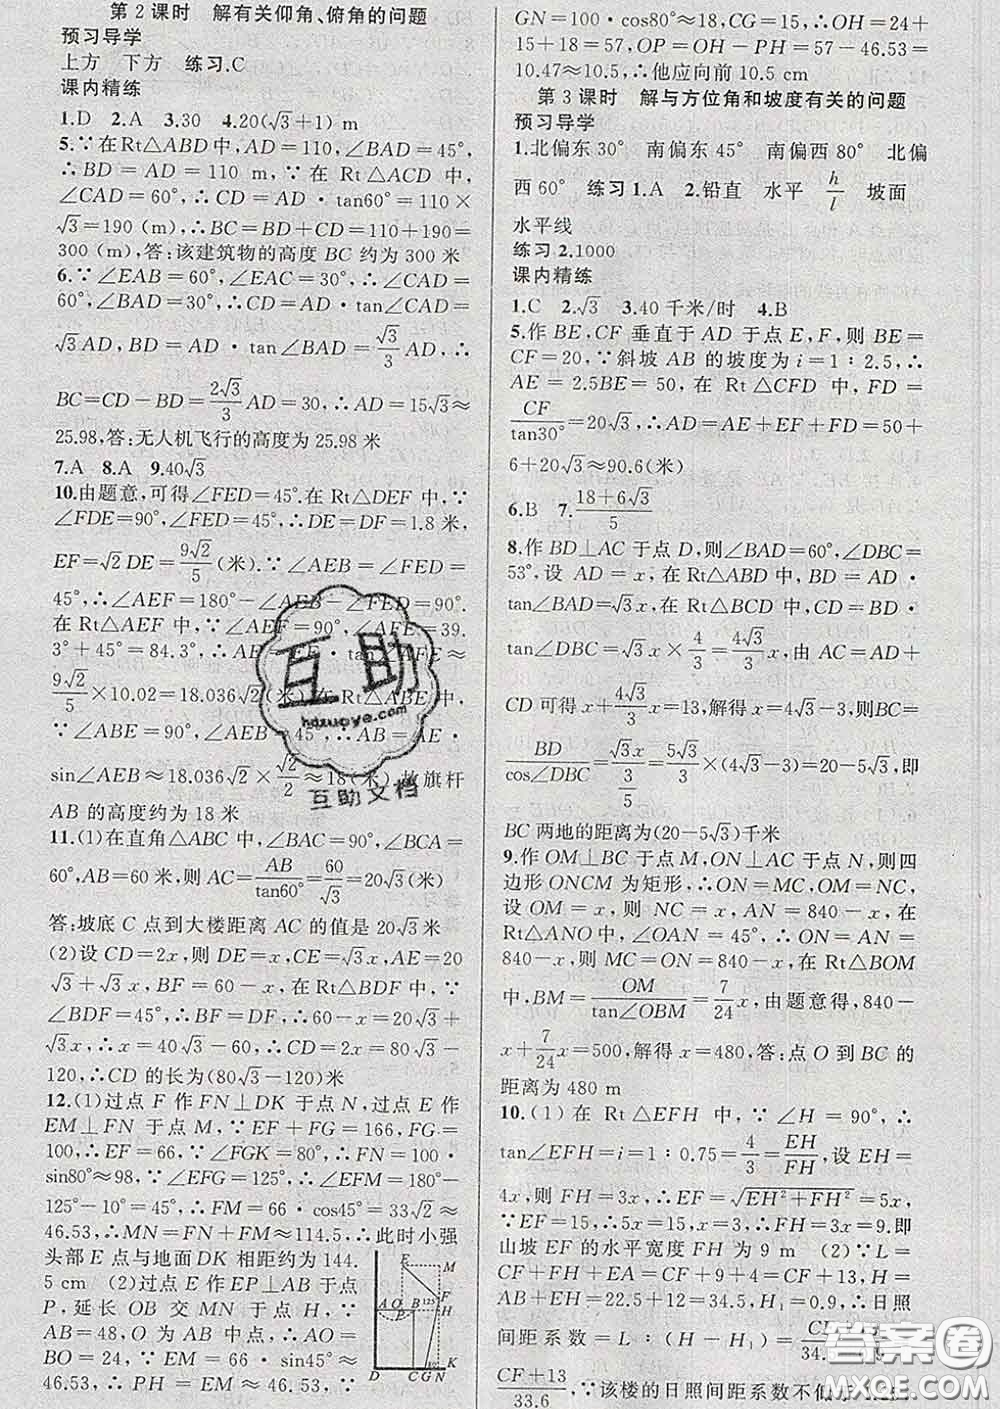 第2课时　解有关仰角、俯角的问题
预习导学
上方　下方　练习.C
课内精练
1.D　2.A　3.30　4.20(√3+1) m
5.∵在Rt△ABD中,AD=110,∠BAD=45°,
∴BD=AD=110 m,∵在Rt△ACD中,
∠CAD=60°,∴CD=AD·tan60°=110×
√3=190(m),∴BC=BD+CD=110+190=
300(m),答:该建筑物的高度BC约为300米
6.∵∠EAB=60°,∠EAC=30°,∴∠CAD=
60°,∠BAD=30°,∴CD=AD·tan∠CAD=
√3AD,BD=AD·tan∠BAD=√3/3AD,∴
BC=CD-BD=2√3/3AD=30,∴AD=15√3≈
25.98,答:无人机飞行的高度为25.98米
7.A　8.A　9.40√3
10.由题意,可得∠FED=45°.在Rt△DEF中,∵
∠FDE=90°,∠FED=45°,∴DE=DF=1.8米,
EF=√2DE=9√2/5(米).∵∠AEB=∠FED=
45°,∴∠AEF=180°-∠AEB-∠FED=90°.
在Rt△AEF中,∵∠AEF=90°,∠AFE=39.
3°+45°=84.3°,∴AE=EF·tan∠AFE≈
9√2/5×10.02=18.036√2(米).在Rt△ABE中,
∵∠ABE=90°,∠AEB=45°,∴AB=AE·
sin∠AEB≈18.036√2×√2/2≈18(米).故旗杆
AB的高度约为18米
11.(1)在直角△ABC中,∠BAC=90°,∠BCA=
60°,AB=60米,则AC=AB/tan60°=60/√3=20√3(米)
答:坡底C点到大楼距离AC的值是20√3米
(2)设CD=2x,则DE=x,CE=√3x,AE=20
√3+√3x,BF=60-x,在Rt△BDF中,∵
∠BDF=45°,∴BF=DF,∴60-x=20√3+
√3x,∴x=40√3-60,∴CD=2x=80√3-
120,∴CD的长为(80√3-120)米
12.(1)过点F作FN⊥DK于点N,过点E作
EM⊥FN于点M,∵EF+FG=166,FG=
100,∴EF=66,∵∠FGK=80°,∴FN=100·
sin80°≈98,∵∠EFG=125°,∴∠EFM=180°-
125°-10°=45°,∴FM=66·cos45°=33√2≈
46.53,∴MN=FN+FM≈114.5,∴此时小强
头部E点与地面DK相距约为144.
5 cm　(2)过点E作EP⊥AB于点
P,延长OB交MN于点H,∵
AB=48,O为AB中点,∴AO=
BO=24,∵EM=66·sin45°≈
46.53,∴PH=EM≈46.53,∵
E M
F
A O B 125° H
P
D C G N K
GN=100·cos80°≈18,CG=15,∴OH=24+
15+18=57,OP=OH-PH=57-46.53=
10.47≈10.5,∴他应向前10.5 cm
第3课时　解与方位角和坡度有关的问题
预习导学
1.北偏东30°　南偏东45°　南偏西80°　北偏
西60°　练习1.A　2.铅直　水平　h/l　坡面
水平线
练习2.1000
课内精练
1.C　2.√3　3.40千米/时　4.B
5.作BE,CF垂直于AD于点E,F,则BE=
CF=20,∵斜坡AB的坡度为i=1:2.5,∴
AE=2.5BE=50,在Rt△CFD中,FD=
CF/tan30°=20√3,∴AD=AE+EF+FD=50+
6+20√3≈90.6(米)
6.B　7.(18+6√3)/5
8.作BD⊥AC于点D,则∠BAD=60°,∠DBC=
53°,设AD=x,在Rt△ABD中,BD=AD·
tan∠BAD=√3x,在Rt△BCD中,CD=BD·
tan∠DBC=√3x×4/3=4√3/3x,由AC=AD+
CD可得x+4√3/3x=13,解得x=4√3-3,则BC=
BD/cos∠DBC=√3x/(3/5)=5√3/3x=5√3/3×(4√3-3)=20-5√3,即
BC两地的距离为(20-5√3)千米
9.作OM⊥BC于点M,ON⊥AC于点N,则四
边形ONCM为矩形,∴ON=MC,OM=NC,
设OM=x,则NC=x,AN=840-x,在
Rt△ANO中,∠OAN=45°,∴ON=AN=
840-x,则MC=ON=840-x,在Rt△BOM
中,BM=OM/tan∠OBM=7/24x,由题意得,840-
x+7/24x=500,解得x=480,答:点O到BC的
距离为480 m
10.(1)在Rt△EFH中,∵∠H=90°,∴
tan∠EFH=i=1:0.75=4/3=EH/FH,设EH=
4x,则FH=3x,∴EF=√(EH²+FH²)=5x,
∵EF=15,∴5x=15,x=3,∴FH=3x=9.即
山坡EF的水平宽度FH为9 m　(2)∵L=
CF+FH+EA=CF+9+4=CF+13,H=
AB+EH=22.5+12=34.5,H₁=0.9,∴日照
间距系数=L:(H-H₁)=
(CF+13)/33.6,∵该楼的日照间距系数不低于
互助
hdzuoye.com
互助文档
答案圈
MXQE.COM